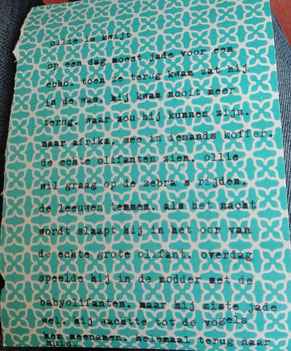 ollie is kwijt
op een dag moest jade voor een
echo. toen ze terug kwam zat hij
in de was. hij kwam nooit meer
terug. waar zou hij kunnen zijn.
naar afrika, mee in iemands koffer.
de echte olifanten zien. ollie
wil graag op de zebra's rijden.
de leeuwen temmen. als het nacht
wordt slaapt hij in het oor van
de echte grote olifant. overdag
speelde hij in de modder met de
babyolifanten. maar hij miste jade
wel. hij wachtte tot de vogels
hem meenamen. helemaal terug naar
huis.